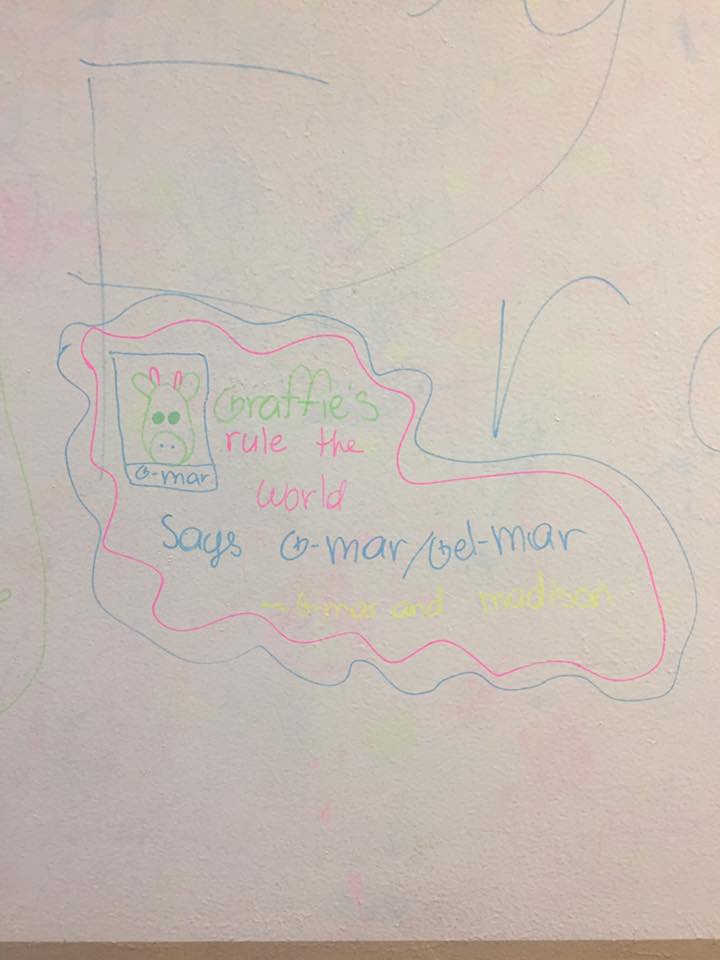 Graffie's
rule the
world
G-mar
Says G-mar/Gel-mar
- G-mar and madison